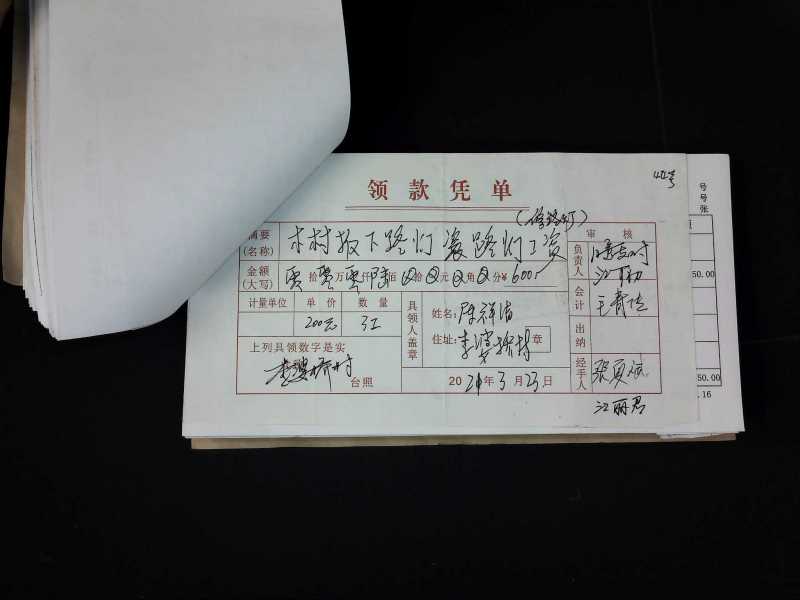 领款凭单
摘要
(名称)
本村拆下路灯 装路灯工资
(修路灯)
审核
金额
(大写)
零拾零万零仟陆佰0拾0元0角0分¥600
计量单位 单价 数量
200元 3工
具领人盖章
姓名:陈祥
住址:李婆桥村 章
上列具领数字是实
李婆桥村 台照
2021年3月23日
负责人
会计
出纳
经手人
江丽君
号
号
张
50.00
50.00
.16